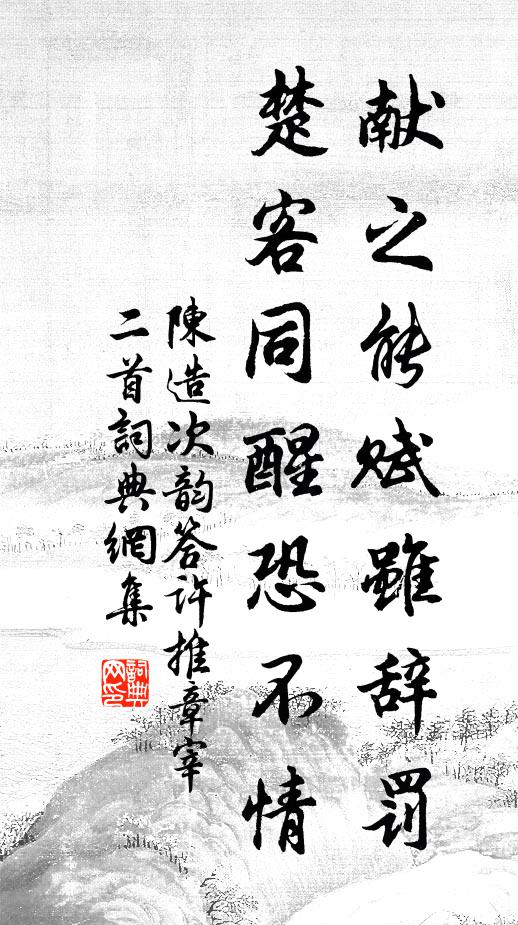 献之能赋雖辞罰
楚客同醒恐不情
陳造次韵答许推章宰
二首詞典網集
詞典
网印